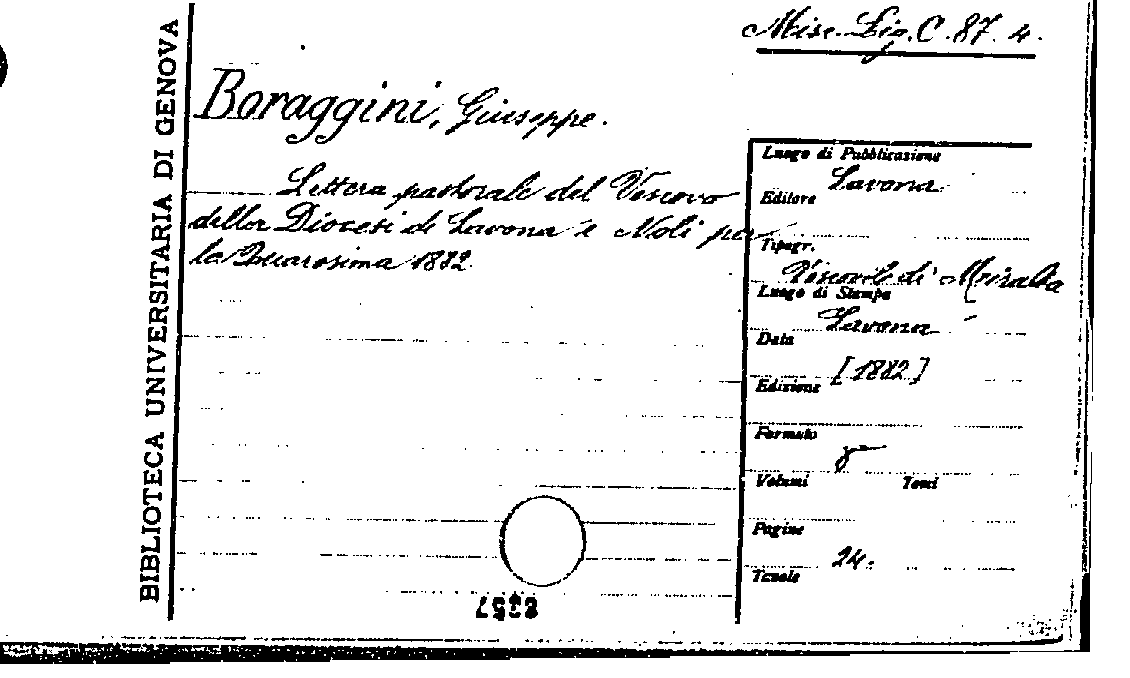 BIBLIOTECA UNIVERSITARIA DI GENOVA
Misc. Lig. C. 87. 4.
Boraggini, Giuseppe.
Lettera pastorale del Vescovo
della Diocesi di Savona e Noli per
la Quaresima 1882
Luogo di Pubblicazione
Savona
Editore
Tipogr.
Vescovile di Miralta
Luogo di Stampa
Savona
Data
[1882]
Edizione
Formato
8°
Volumi Tomi
Pagine
24.
Tavole